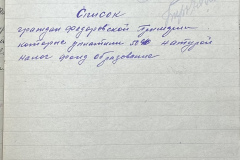 Список
граждан Федоровской
которые уплатили натурой
налог фонд образование